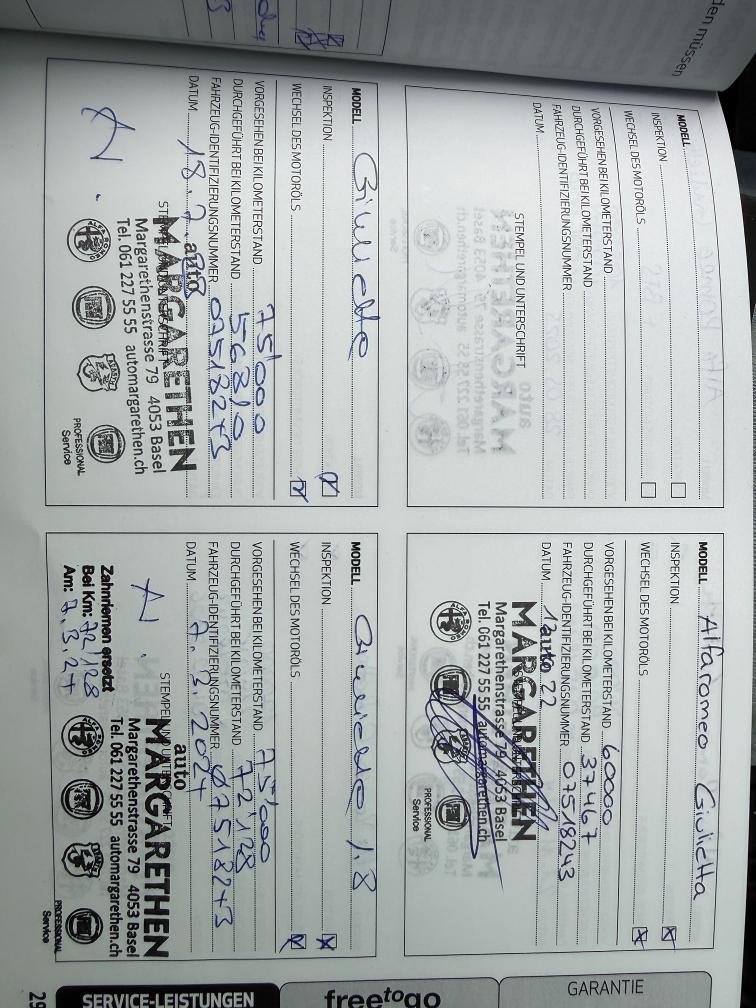 den müssen
MODELL
INSPEKTION
WECHSEL DES MOTORÖLS
VORGESEHEN BEI KILOMETERSTAND
DURCHGEFÜHRT BEI KILOMETERSTAND
FAHRZEUG-IDENTIFIZIERUNGSNUMMER
DATUM
STEMPEL UND UNTERSCHRIFT
MODELL Alfaromeo Giulietta
INSPEKTION
WECHSEL DES MOTORÖLS
VORGESEHEN BEI KILOMETERSTAND 60000
DURCHGEFÜHRT BEI KILOMETERSTAND 37467
FAHRZEUG-IDENTIFIZIERUNGSNUMMER 07518243
DATUM 22
auto
MARGARETHEN
Margarethenstrasse 79 4053 Basel
Tel. 061 227 55 55 automargarethen.ch
ALFA ROMEO
PROFESSIONAL
Service
MODELL Giulietta
INSPEKTION
WECHSEL DES MOTORÖLS
VORGESEHEN BEI KILOMETERSTAND 75'000
DURCHGEFÜHRT BEI KILOMETERSTAND
FAHRZEUG-IDENTIFIZIERUNGSNUMMER 07518243
DATUM 18.7.
auto
MARGARETHEN
Margarethenstrasse 79 4053 Basel
Tel. 061 227 55 55 automargarethen.ch
ALFA ROMEO
ABARTH
PROFESSIONAL
Service
MODELL Giulietta 1.8
INSPEKTION
WECHSEL DES MOTORÖLS
VORGESEHEN BEI KILOMETERSTAND 75'000
DURCHGEFÜHRT BEI KILOMETERSTAND 72'128
FAHRZEUG-IDENTIFIZIERUNGSNUMMER 07518243
DATUM 7.3.2024
auto
MARGARETHEN
Margarethenstrasse 79 4053 Basel
Tel. 061 227 55 55 automargarethen.ch
PROFESSIONAL
Service
Zahnriemen ersetzt
Bei Km: 72'128
Am: 7.3.24
GARANTIE
freetogo
SERVICE-LEISTUNGEN
29